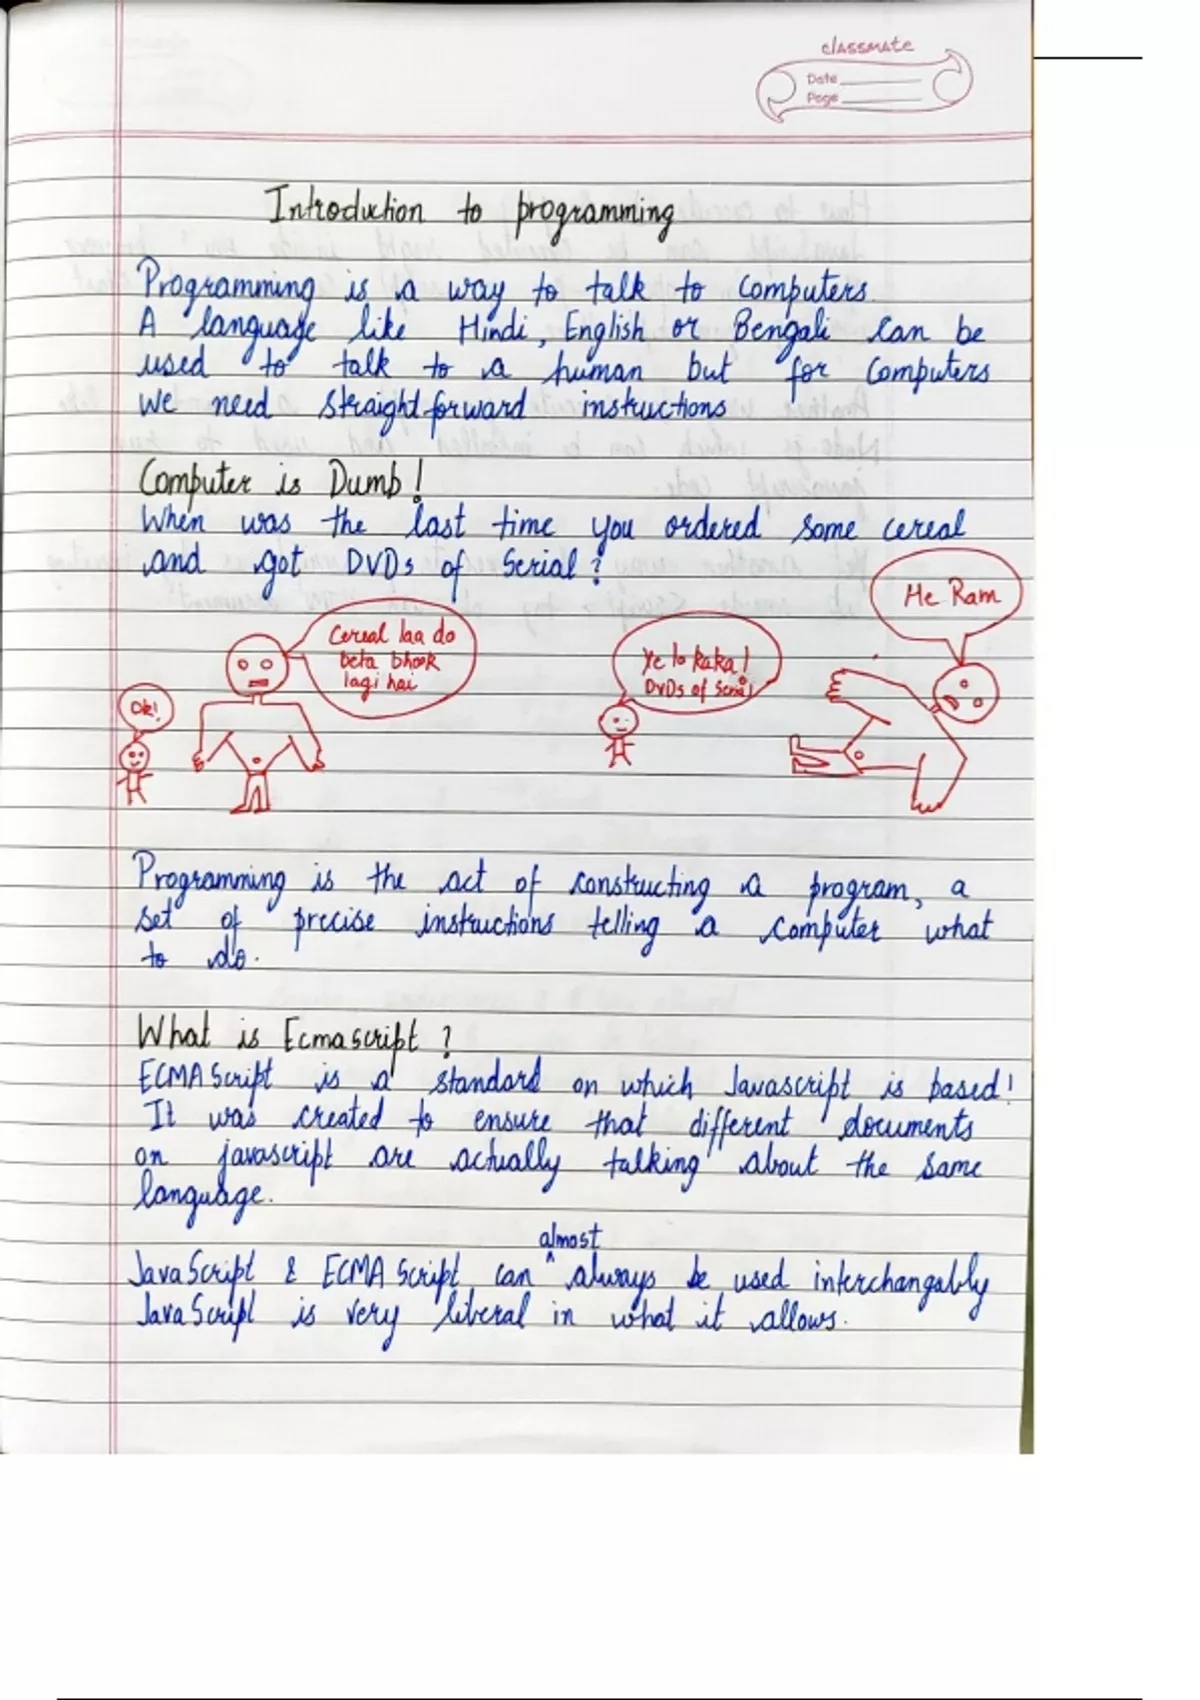 classmate
Date
Page
Introduction to programming
Programming is a way to talk to Computers.
A language like Hindi, English or Bengali can be
used to talk to a human but for Computers
we need straightforward instructions
Computer is Dumb!
When was the last time you ordered some cereal
and got DVDs of Serial?
He Ram
Cereal laa do
beta bhook
lagi hai
Ye lo Kaka!
DVDs of Serial
Ok!
Programming is the act of constructing a program, a
set of precise instructions telling a computer what
to do.
What is Ecmascript?
ECMAScript is a standard on which Javascript is based!
It was created to ensure that different documents
on javascript are actually talking about the same
language.
almost
JavaScript & ECMAScript can ^ always be used interchangably
JavaScript is very liberal in what it allows.